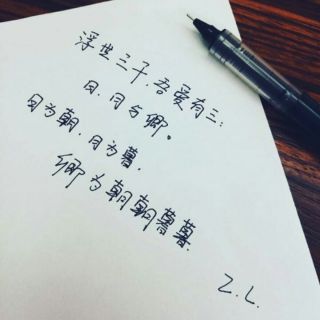 浮世三千,吾爱有三:
日,月与卿。
日为朝,月为暮,
卿为朝朝暮暮.
Z.L.